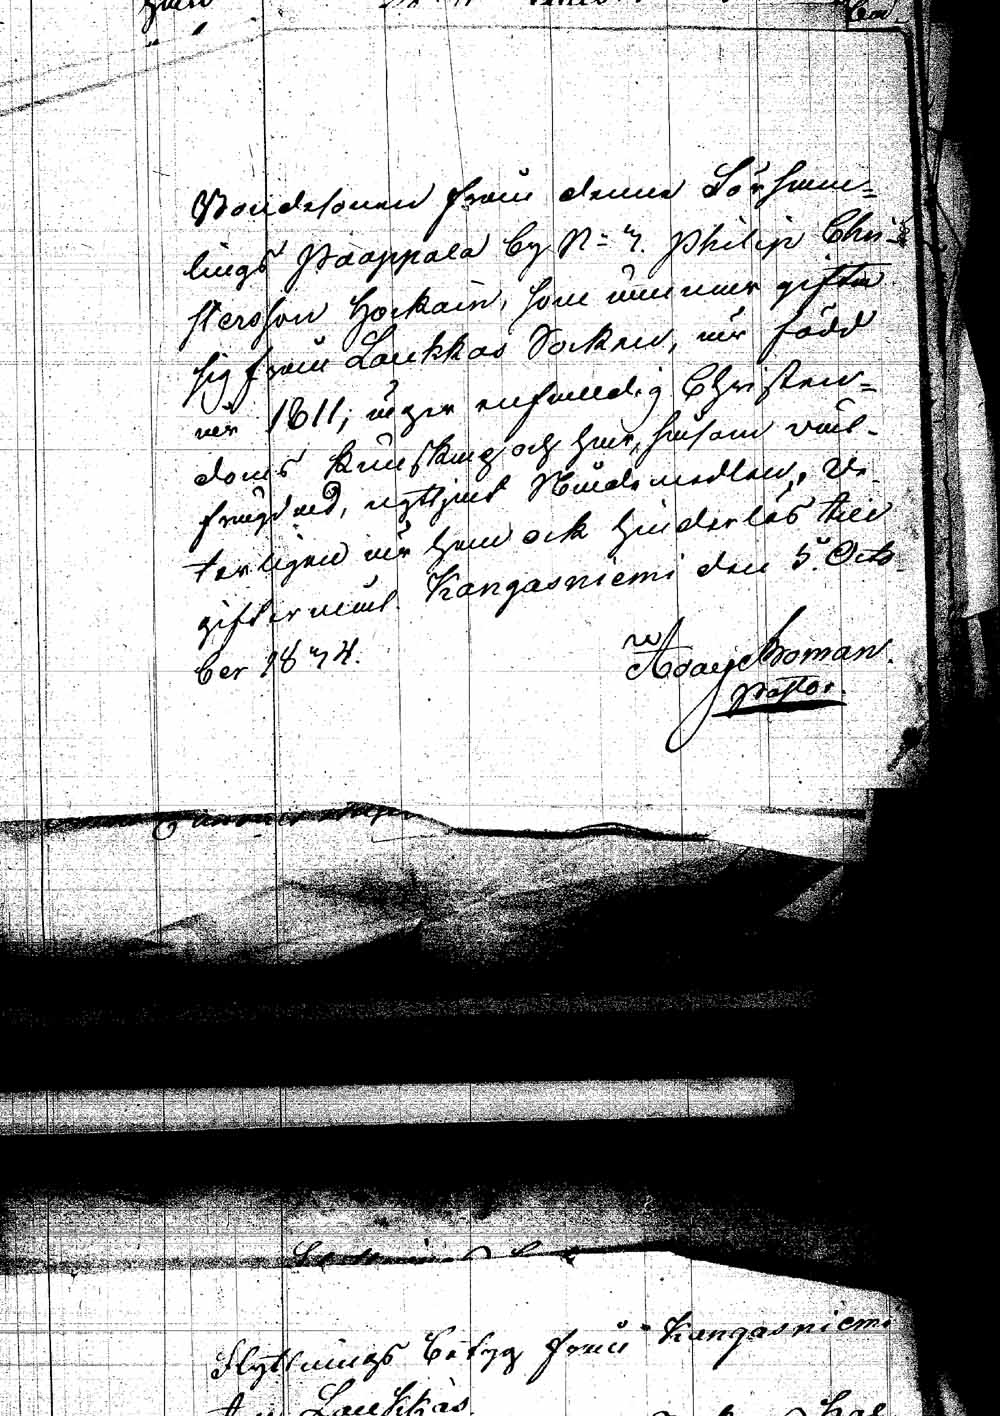 Bondesonen från denna Församm-
lings Paappala by N: 7. Philip Chri-
stersson Hokkain, som ämnar gifta
sig från Laukkas Socken, är född
år 1811; äger enfaldig Christen-
doms kunskap och har, såsom väl-
frägdad, nyttjat Nådemedlen, Vi-
terligen är han ock hinderlös till
giftermål. Kangasniemi den 5. Octo-
ber 1834.
Aday Broman.
Pastor.
Flyttnings Betyg från Kangasniemi
Laukkas